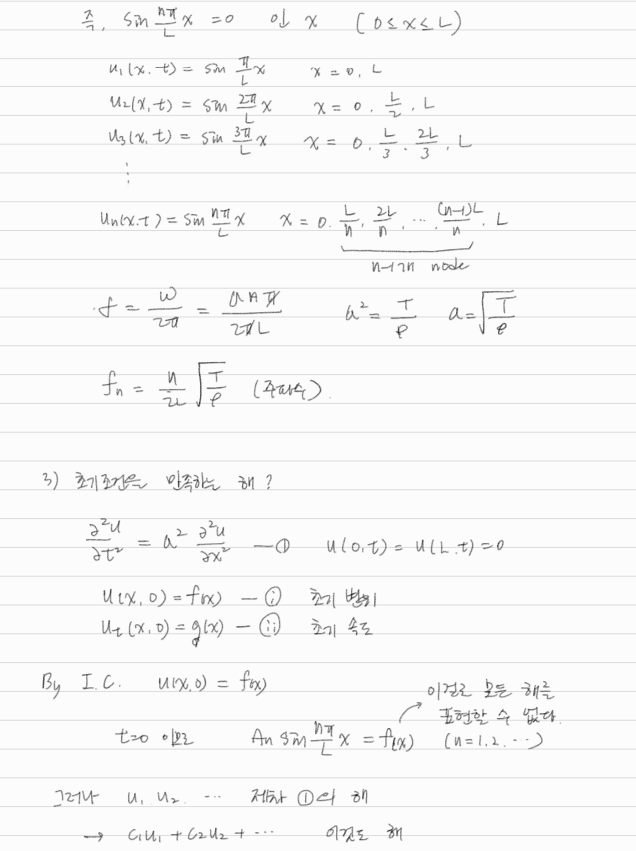 즉, sin nπ/L x = 0 인 x (0≤x≤L)
u₁(x,t) = sin π/L x x = 0, L
u₂(x,t) = sin 2π/L x x = 0, L/2, L
u₃(x,t) = sin 3π/L x x = 0, L/3, 2L/3, L
⋮
uₙ(x,t) = sin nπ/L x x = 0, L/n, 2L/n, ..., (n-1)L/n, L
n-1개 node
f = ω/2π = anπ/2πL a² = T/ρ a = √(T/ρ)
fₙ = n/2L √(T/ρ) (주파수).
3) 초기조건을 만족하는 해?
∂²u/∂t² = a² ∂²u/∂x² — ① u(0,t) = u(L,t) = 0
u(x,0) = f(x) — ⓘ 초기 변위
uₜ(x,0) = g(x) — ⓘⓘ 초기 속도
By I.C. u(x,0) = f(x)
이걸로 모든 해를
표현할 수 없다.
t=0 이므로 Aₙ sin nπ/L x = f(x) (n=1,2,...)
그러나 u₁, u₂, ... 제차 ①의 해
→ c₁u₁ + c₂u₂ + ... 이것도 해